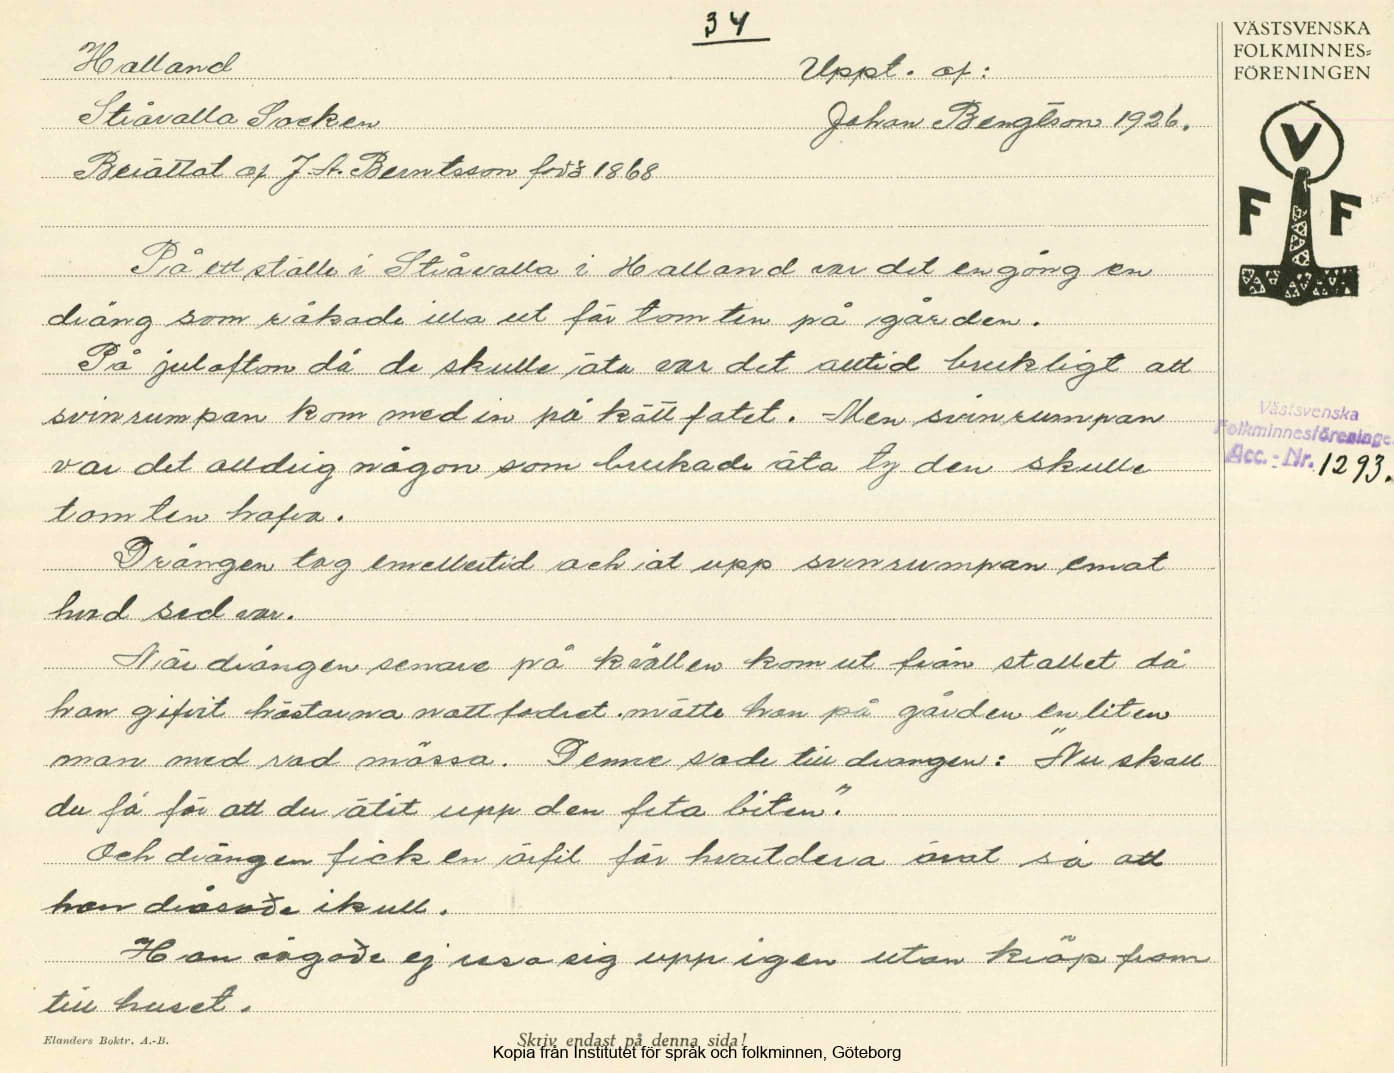 34
Halland
Uppt. af:
Stråvalla Socken
Johan Bengtson 1926.
Berättat af J. A. Berntsson född 1868
På ett ställe i Stråvalla i Halland var det en gång en
dräng som råkade illa ut för tomten på gården.
På julafton då de skulle äta var det alltid brukligt att
svinrumpan kom med in på köttfatet. Men svinrumpan
var det alldrig någon som brukade äta ty den skulle
tomten hafva.
Drängen tog emellertid och åt upp svinrumpan emot
hvad sed var.
När drängen senare på kvällen kom ut från stallet då
han gifvit hästarna nattfodret mötte han på gården en liten
man med röd mössa. Denne sade till drangen: "Nu skall
du få för att du ätit upp den feta biten".
Och drängen fick en örfil för hvartdera örat så att
han dråsade ikull.
Han vågade ej resa sig upp igen utan kröp fram
till huset.
Elanders Boktr. A.-B.
Skriv endast på denna sida!
Kopia från Institutet för språk och folkminnen, Göteborg
VÄSTSVENSKA
FOLKMINNES=
FÖRENINGEN
V
F F
Västsvenska
Folkminnesföreninge
Acc. - Nr. 1293.